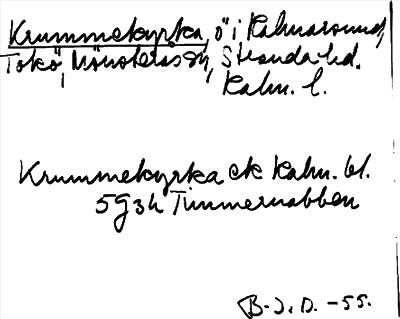 Krummekyrka, ö i Kalmarsund,
Tokö, Mönsterås sn, Stranda hd.
Kalm. l.
Krummekyrka ek Kalm. bl.
5g3h Timmernabben
B-J.D. -55.